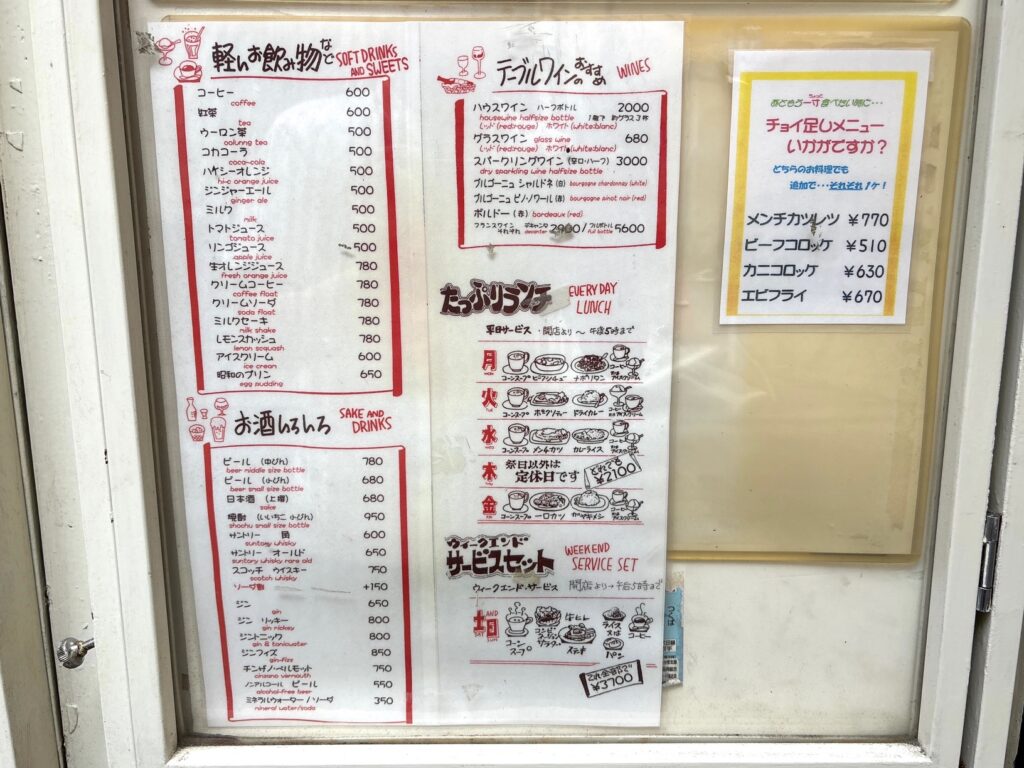 軽いお飲み物など SOFT DRINKS AND SWEETS
コーヒー 600
coffee
紅茶 600
tea
ウーロン茶 500
oolunng tea
コカコーラ 500
coca-cola
ハイシーオレンジ 500
hi-c orange juice
ジンジャーエール 500
ginger ale
ミルク 500
milk
トマトジュース 500
tomato juice
リンゴジュース 500
apple juice
生オレンジジュース 780
fresh orange juice
クリームコーヒー 780
coffee float
クリームソーダ 780
soda float
ミルクセーキ 780
milk shake
レモンスカッシュ 780
lemon scquash
アイスクリーム 600
ice cream
昭和のプリン 650
egg pudding
お酒いろいろ SAKE AND DRINKS
ビール (中びん) 780
beer middle size bottle
ビール (小びん) 680
beer small size bottle
日本酒 (上撰) 680
sake
焼酎 (いいちこ 小びん) 950
shochu small size bottle
サントリー 角 600
suntory whisky
サントリー オールド 650
suntory whisky rare old
スコッチ ウイスキー 750
scotch whisky
ソーダ割 +150
ジン 650
gin
ジン リッキー 800
gin rickey
ジントニック 800
gin & tonicwater
ジンフィズ 850
gin-fizz
チンザノ・ベルモット 750
cinzano vermouth
ノンアルコール ビール 550
alcohol-free beer
ミネラルウォーター / ソーダ 350
mineral water/soda
テーブルワインのおすすめ WINES
ハウスワイン ハーフボトル 2000
housewine halfsize bottle 1瓶で 約グラス3杯
レッド(red:rouge) ホワイト(white:blanc)
グラスワイン glass wine 680
レッド(red:rouge) ホワイト(white:blanc)
スパークリングワイン (辛口・ハーフ) 3000
dry sparkling wine halfsize bottle
ブルゴーニュ シャルドネ (白) bourgogne chardonnay (white)
ブルゴーニュ ピノ・ノワール (赤) bourgogne pinot noir (red)
ボルドー (赤) bordeaux (red)
フランスワイン それぞれ デキャンタ decanter 2900 / フルボトル full bottle 5600
たっぷりランチ EVERYDAY LUNCH
平日サービス 開店より〜午后5時まで
月 コーンスープ ビーフシチュー ナポリタン コーヒー 又は アイスクリーム
火 コーンスープ ポークソティー ドライカレー コーヒー 又は アイスクリーム
水 コーンスープ メンチカツ カレーライス コーヒー 又は アイスクリーム
木 祭日以外は定休日です どれでも ¥2100
金 コーンスープ 一口カツ カマキメシ コーヒー 又は アイスクリーム
ウィークエンド
サービスセット WEEKEND SERVICE SET
ウィークエンド・サービス 開店より→午后5時まで
土日 SAT AND SUN コーンスープ コンビネーションサラダー 牛ヒレステーキ ライス 又は パン コーヒー
これ全部で ¥3700
あともう一寸食べたい時に・・・
ちょっと
チョイ足しメニュー
いかがですか?
どちらのお料理でも
追加で・・・それぞれ1ヶ!
メンチカツレツ ¥770
ビーフコロッケ ¥510
カニコロッケ ¥630
エビフライ ¥670